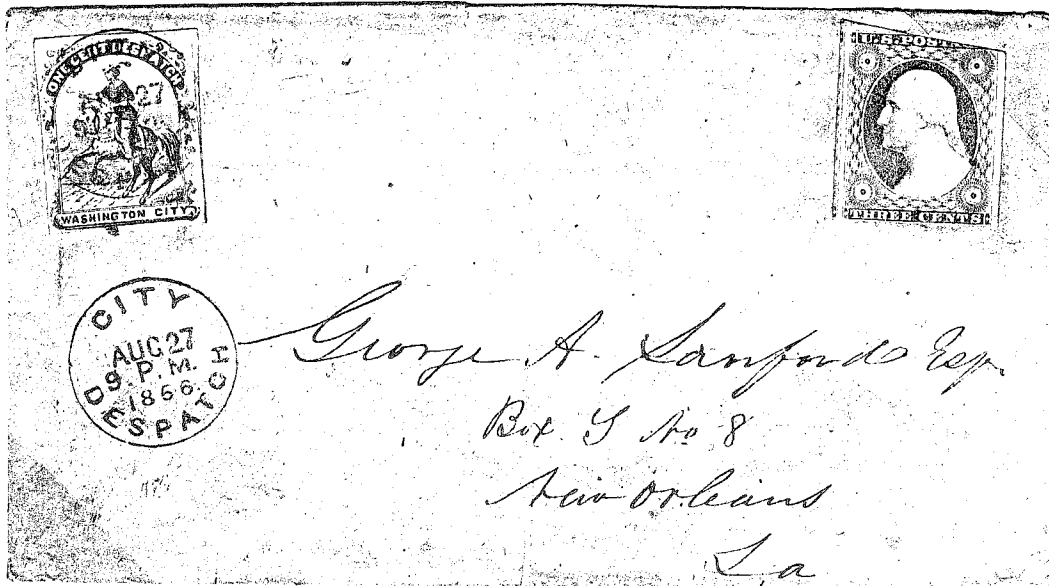 ONE CENT DESPATCH
27
WASHINGTON CITY
U.S. POST
THREE CENTS
CITY
AUG 27
9 P.M.
1856
DESPATCH
George A. Sanford Esq.
Box S No 8
New Orleans
La